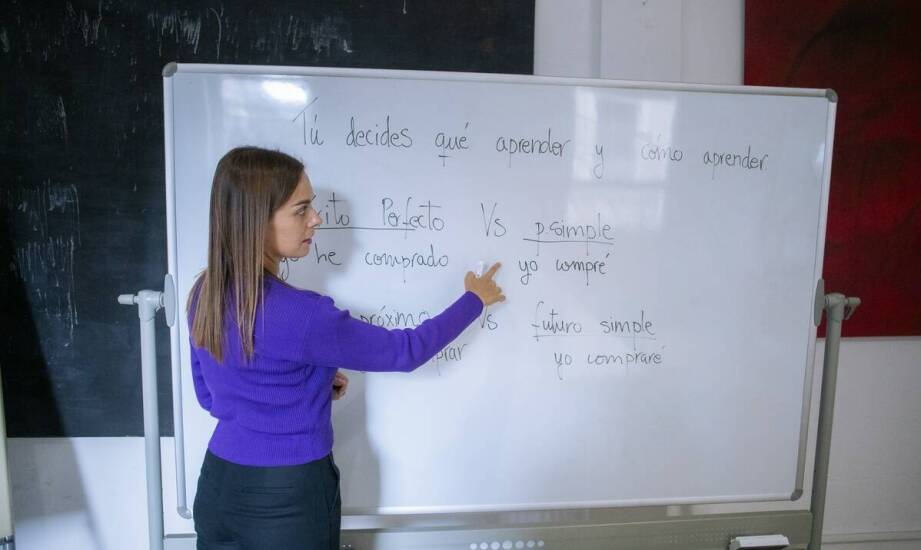 Tú decides qué aprender y cómo aprender.
Perfecto Vs p.simple
yo he comprado yo compré
próximo Vs futuro simple
yo compraré